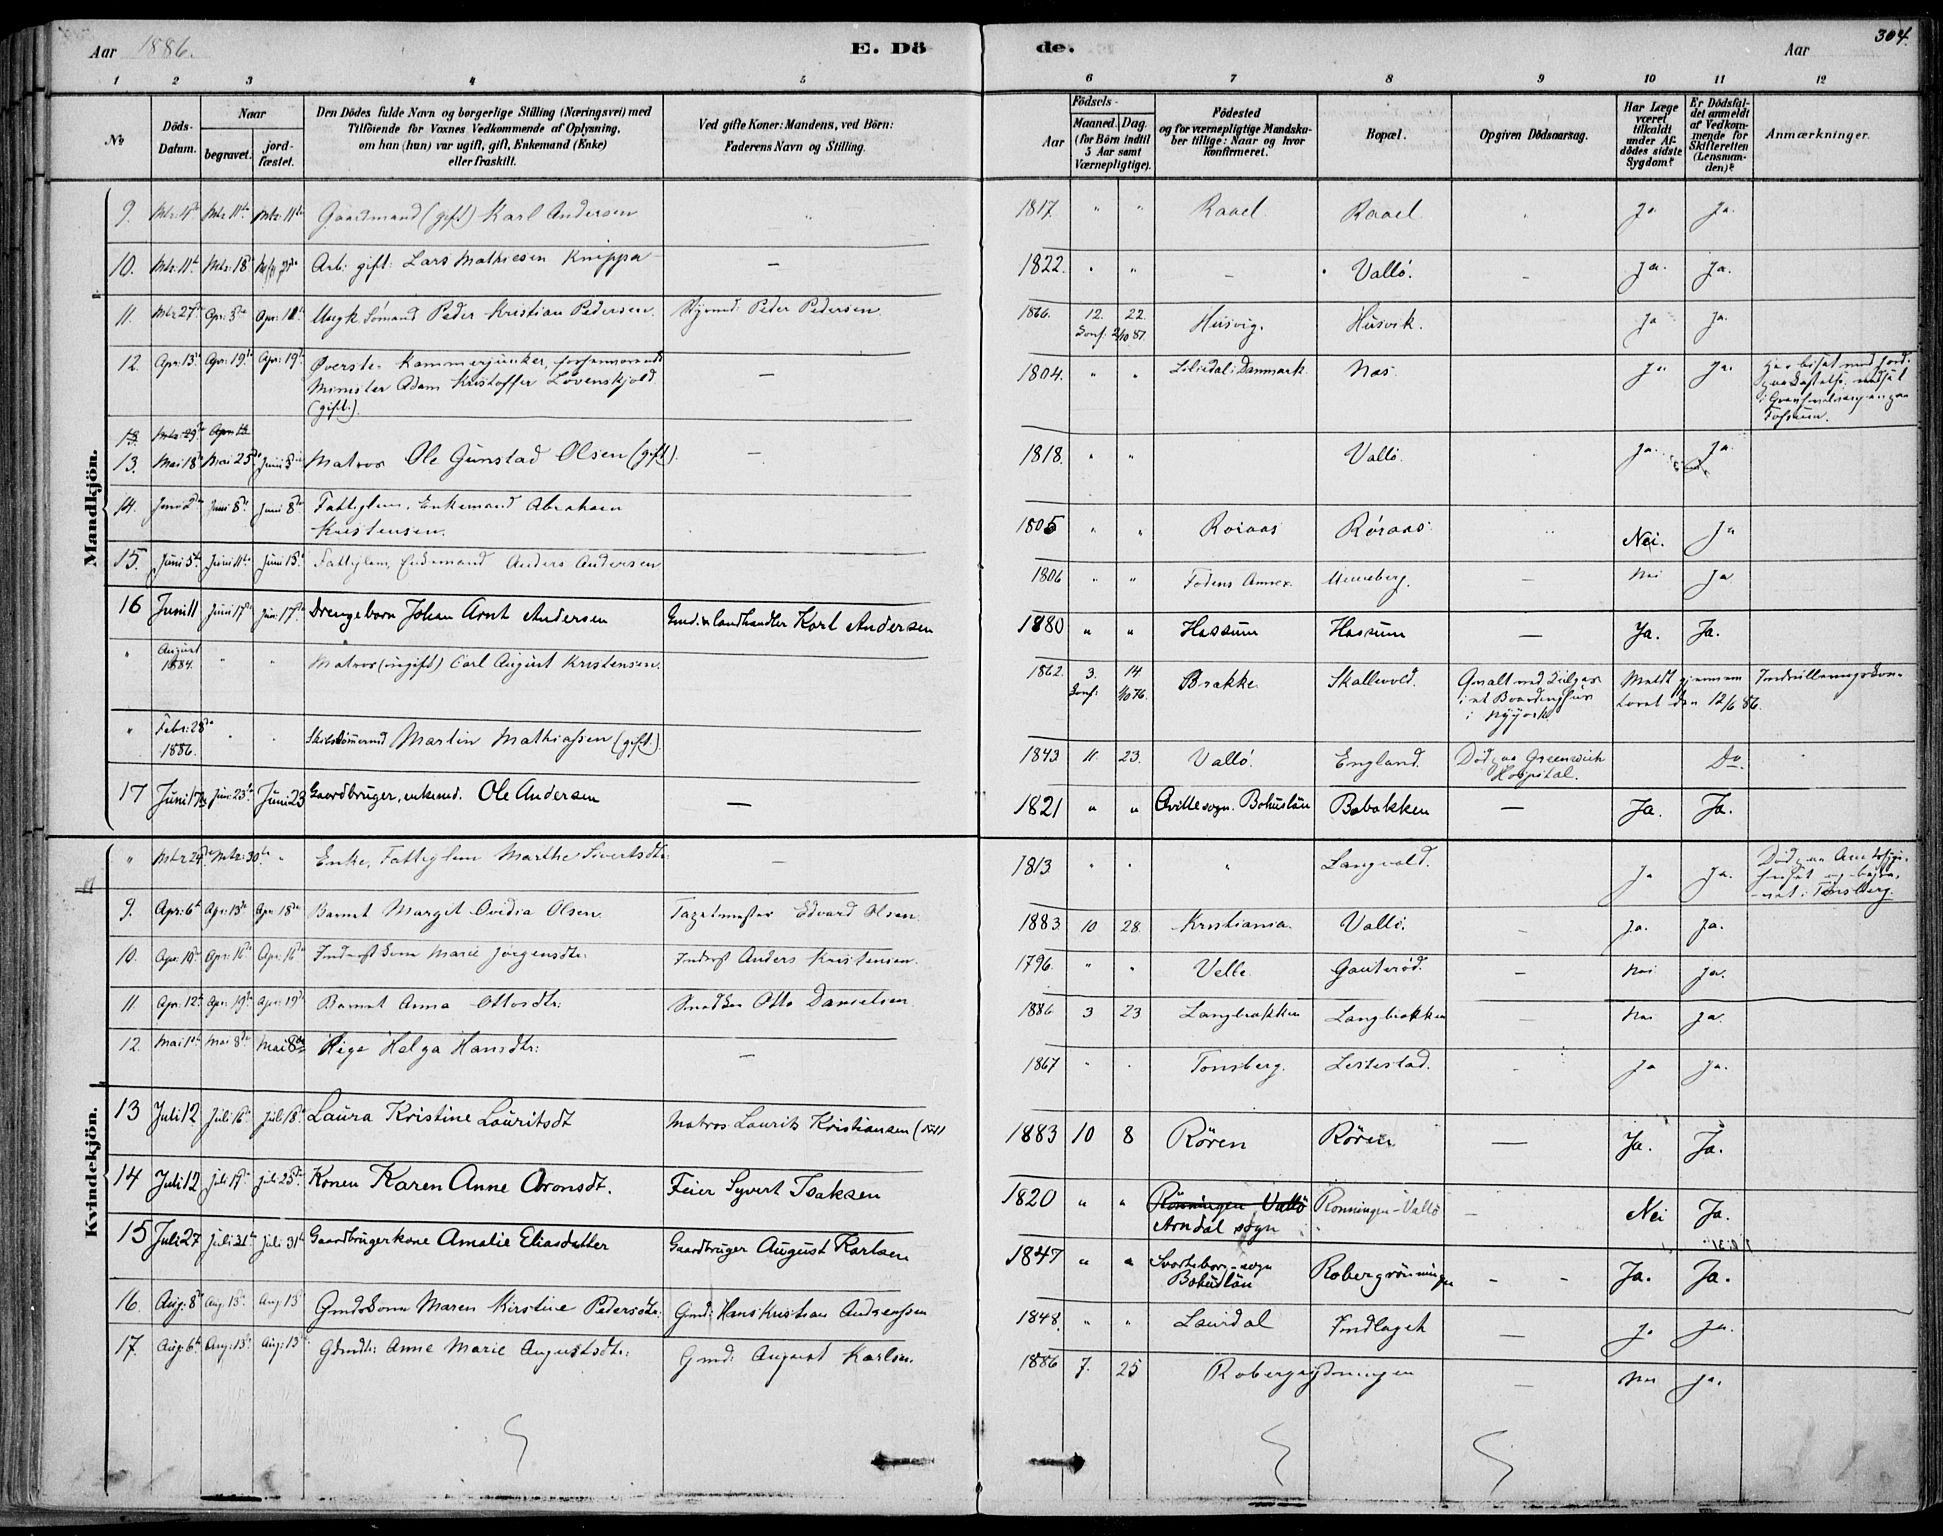 Aar 1886.
E. Dö
de.
Aar
304.
1 2 3 4 5 6 7 8 9 10 11 12
No
Döds-Datum.
Naar
begravet.
jord-fæstet.
Den Dödes fulde Navn og borgerlige Stilling (Næringsvei) med
Tilföiende for Voxnes Vedkommende af Oplysning,
om han (hun) var ugift, gift, Enkemand (Enke)
eller fraskilt.
Ved gifte Koner: Mandens, ved Börn:
Faderens Navn og Stilling.
Födsels-
Aar
Maaned. Dag.
(for Börn indtil
5 Aar samt
Værnepligtige).
Födested
og for værnepligtige Mandska-
ber tillige: Naar og hvor
konfirmeret.
Bopæl.
Opgiven Dödsaarsag.
Har Læge
været
tilkaldt
under Af-
dödes sidste
Sygdom?
Er Dödsfal-
det anmeldt
af Vedkom-
mende for
Skifteretten
(Lensman-
den)?
Anmærkninger.
Mandkjön.
9. Mts: 4de Mts 11te Mts 11te Gaardmand (gift) Karl Andersen " 1817. " " Raael. Raael. Ja Ja.
10. Mts: 11te Mts: 18de Arb: gift: Lars Mathiesen Knippa — 1822. " " — Vallö. — Ja. Ja.
11. Mts 27de Apr: 3die Apr: 11te Ungk. Sömand Peder Kristian Pedersen. Peder Pedersen 1866. 12. 22. Husvig. Husvik. Ja Ja.
Konf. 2/10 81.
12. Apr: 13de Apr: 19de Apr: 19de Øverste, Kammerjunker, forhenværende
Minister Adam Kristoffer Lövenskjold
(gift.) — 1804. " " Danmark. Næs. Ja Ja.
Fossum.
13. Mts: 29de Apr:
13. Mai 18de Mai 25de Juni 8de Matros Ole Gunstad Olsen (gift) — 1818. " " Vallö. Ja. Ja.
14. Juni 2den Juni 8de Juni 8de Fattiglem, Enkemand Abraham
Kristensen. 1805 " " Roraas Röraas. Nei. Ja
15. Juni 5te Juni 11te Juni 15de Fattiglem, Enkemand Anders Andersen 1806 " " Fodens Annex. — Nei Ja
16 Juni 11 Juni 17de Jun: 17de Drengebarn Johan Arnt Andersen Gmd. & landhandler Karl Andersen 1880 " " Hassum Hassum — Ja. Ja.
" August
1884. " " Matros (ugift) Carl August Kristensen. 1862. 3. 14 Brakke. Skallevold.
Konf. 1/10 76.
i et Boardinghus
i Nyyork
Meldt gjennem Indrulleringskon-
toret den 12/6 86.
" Febr: 28de
1886. " " Skibstömmermd Martin Mathiassen (gift). 1843 11. 23. Vallö. England. Död paa Greenwich
Hospital. Do.
17 Juni 17de Jun: 23de Juni 23 Gaardbruger, enkemd. Ole Andersen — 1821 " " Qville sogn. Bohuslän Bobakken — Ja. Ja.
Kvindekjön.
" Mts 24de Mts: 30te " Enke, Fattiglem Marthe Sivertsdtr. — 1813. " " " Langvold. Ja Ja. Död paa
i Tönsberg.
9. Apr: 6te Apr: 13de Apr 18de Barnet Margit Ovidia Olsen. Edvard Olsen. 1883. 10 28 Kristiania. Vallö. — Ja. Ja.
10. Apr: 10de Apr: 16de Apr: 16de Inderstkone Marie Jörgensdtr: Inderst Anders Kristensen. 1796. " " Velle Gauteröd. — Nei Ja.
11. Apr: 12te Apr: 19de Apr: 19de Barnet Anna Ottosdtr: Otto Danielsen 1886 3 23 Langbakken Langbakken — Nei Ja.
12. Mai 1ste Mai 8de Mai 8de Pige Helga Hansdtr: — 1867 " " Tonsberg. Lestestad. — Ja Ja.
13 Juli 12 Juli 16de Juli 18de Laura Kristine Lauritsdt Matros Laurits Kristiansen 1883 10 8 Rören Rören — Ja. Ja.
14 Juli 12 Juli 17de Juli 25de Konen Karen Anne Aronsdt. Feier Syvert Isaksen 1820 " " Rönningen Vallö
Arndal sogn Ronningen-Vallö — Nei Ja.
15 Juli 27 Juli 31te Juli 31te Gaardbrugerkone Amalie Eliasdatter Gaardbruger August Karlsen 1847 " " Svarteborg-sogn
Bohuslän Robergrönningen — — Ja. Ja.
16. Aug: 8de Aug: 13de Aug 13 Gmdskone Maren Kirstine Pedersdtr: Gmd: Hans Kristian Andreassen 1848. " " Laurdal Indlaget — Ja Ja.
17. Aug: 6te Aug: 13de Aug: 13 Gdmdtr: Anne Marie Augustsdtr: Gmd: August Karlsen. 1886 7. 25 — Nei Ja.